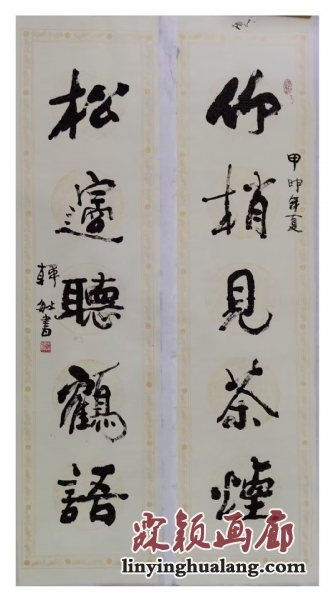 竹梢見茶煙
甲卯年夏
松邊聽鶴語
敏書
霖颖画廊
linyinghualang.com